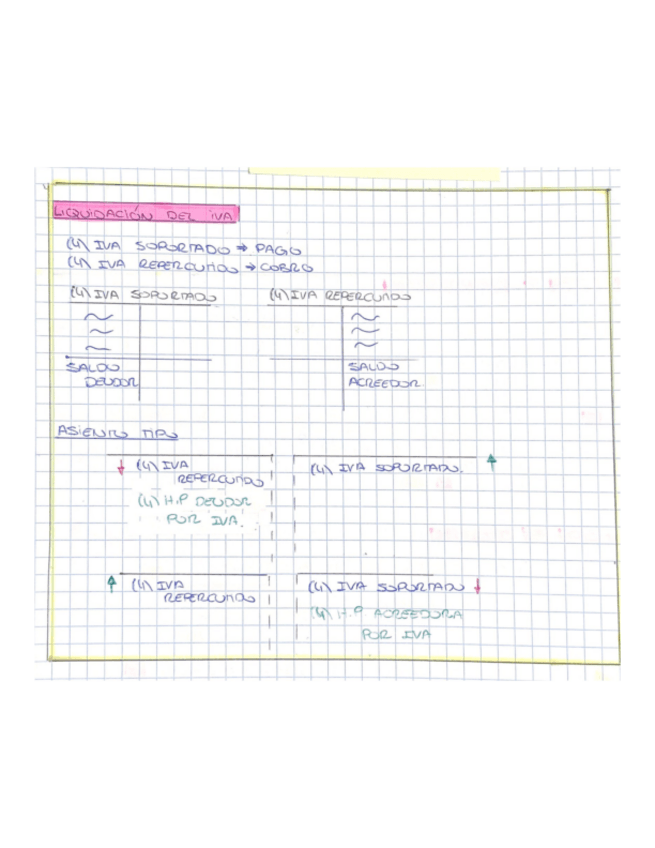 LIQUIDACIÓN DEL IVA
(4) IVA SOPORTADO → PAGO
(4) IVA REPERCUTIDO → COBRO
(4) IVA SOPORTADO (4) IVA REPERCUTIDO
SALDO DEUDOR
SALDO ACREEDOR
ASIENTO TIPO
↓ (4) IVA REPERCUTIDO
(4) H.P DEUDOR POR IVA.
(4) IVA SOPORTADO. ↑
↑ (4) IVA REPERCUTIDO
(4) IVA SOPORTADO ↓
(4) H.P ACREEDORA POR IVA